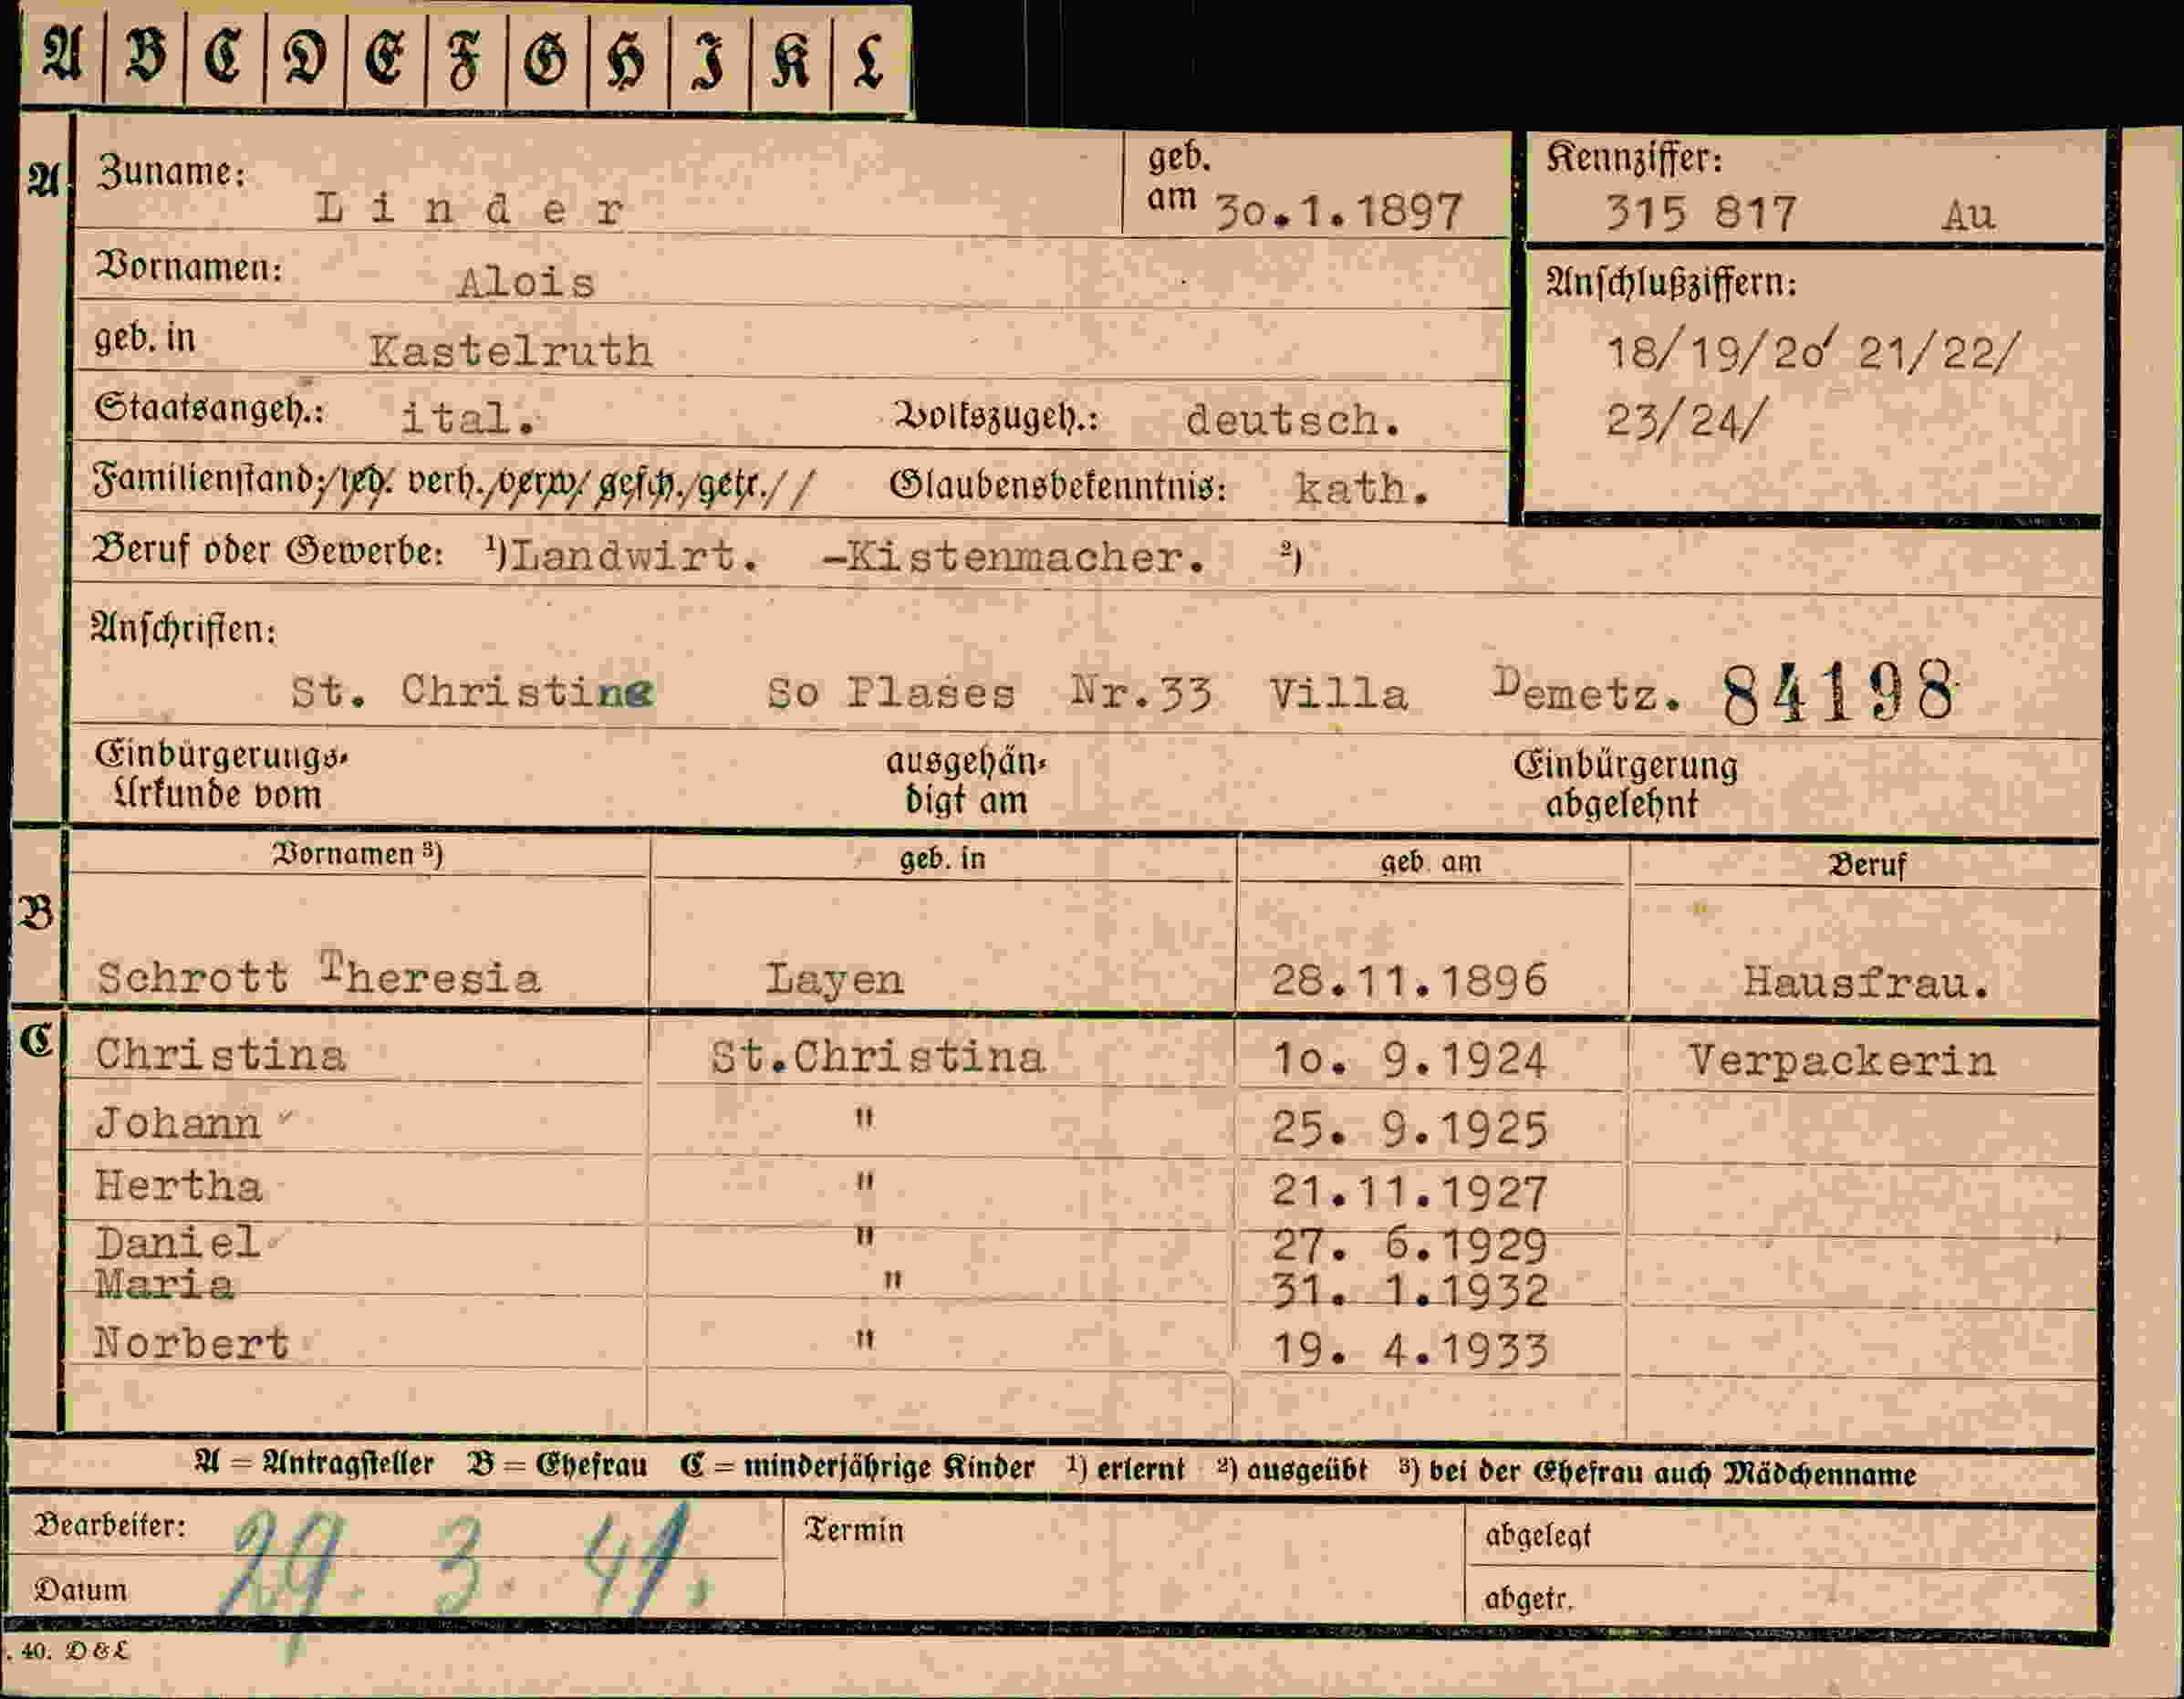 A B C D E F G H I K L
A Zuname: Linder geb. am 30.1.1897 Kennziffer: 315 817 Au
Vornamen: Alois Anschlußziffern:
geb. in Kastelruth 18/19/20/ 21/22/
Staatsangeh.: ital. Volkszugeh.: deutsch. 23/24/
Familienstand: led. verh. verw. gesch. getr. Glaubensbekenntnis: kath.
Beruf oder Gewerbe: ¹) Landwirt. -Kistenmacher. ²)
Anschriften:
St. Christina So Plases Nr.33 Villa Demetz. 84198
Einbürgerungs- ausgehän- Einbürgerung
Urkunde vom digt am abgelehnt
Vornamen ³) geb. in geb. am Beruf
B
Schrott Theresia Layen 28.11.1896 Hausfrau.
C Christina St.Christina 10. 9.1924 Verpackerin
Johann " 25. 9.1925
Hertha " 21.11.1927
Daniel " 27. 6.1929
Maria " 31. 1.1932
Norbert " 19. 4.1933
A = Antragsteller B = Ehefrau C = minderjährige Kinder ¹) erlernt ²) ausgeübt ³) bei der Ehefrau auch Mädchenname
Bearbeiter: Termin abgelegt
29. 3. 41.
Datum abgetr.
. 40. D & L